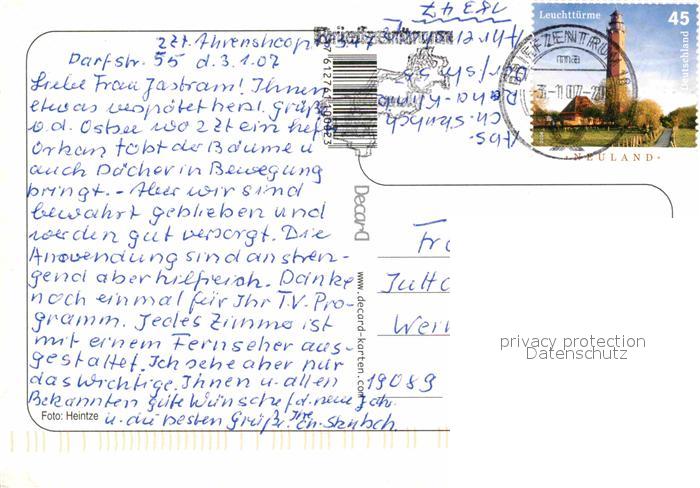 zzt. Ahrenshoop
Dorfstr. 55 d. 3.1.07
Liebe Frau Jastram! Ihnen
etwas verspätet herzl. Grüße
v. d. Ostsee wo zzt ein
Orkan tobt der Bäume u
auch Dächer in Bewegung
bringt. - Aber wir sind
bewahrt geblieben und
werden gut versorgt. Die
Anwendung sind anstren-
gend aber hilfreich. Danke
noch einmal für Ihr T.V. Pro-
gramm. Jedes Zimmer ist
mit einem Fernseher aus-
gestattet. Ich sehe aber nur
das Wichtige. Ihnen u. allen
Bekannten gute Wünsche f. d. neue Jahr
u. die besten Grüße Ihre
Foto: Heintze
Decard
www.decard-karten.com
18347
Reha-Klinik
Leuchttürme
45
Deutschland
NEULAND
BRIEFZENTRUM 18
-3.-1.07-20
Fr
Jutta
Wer
19089
privacy protection
Datenschutz